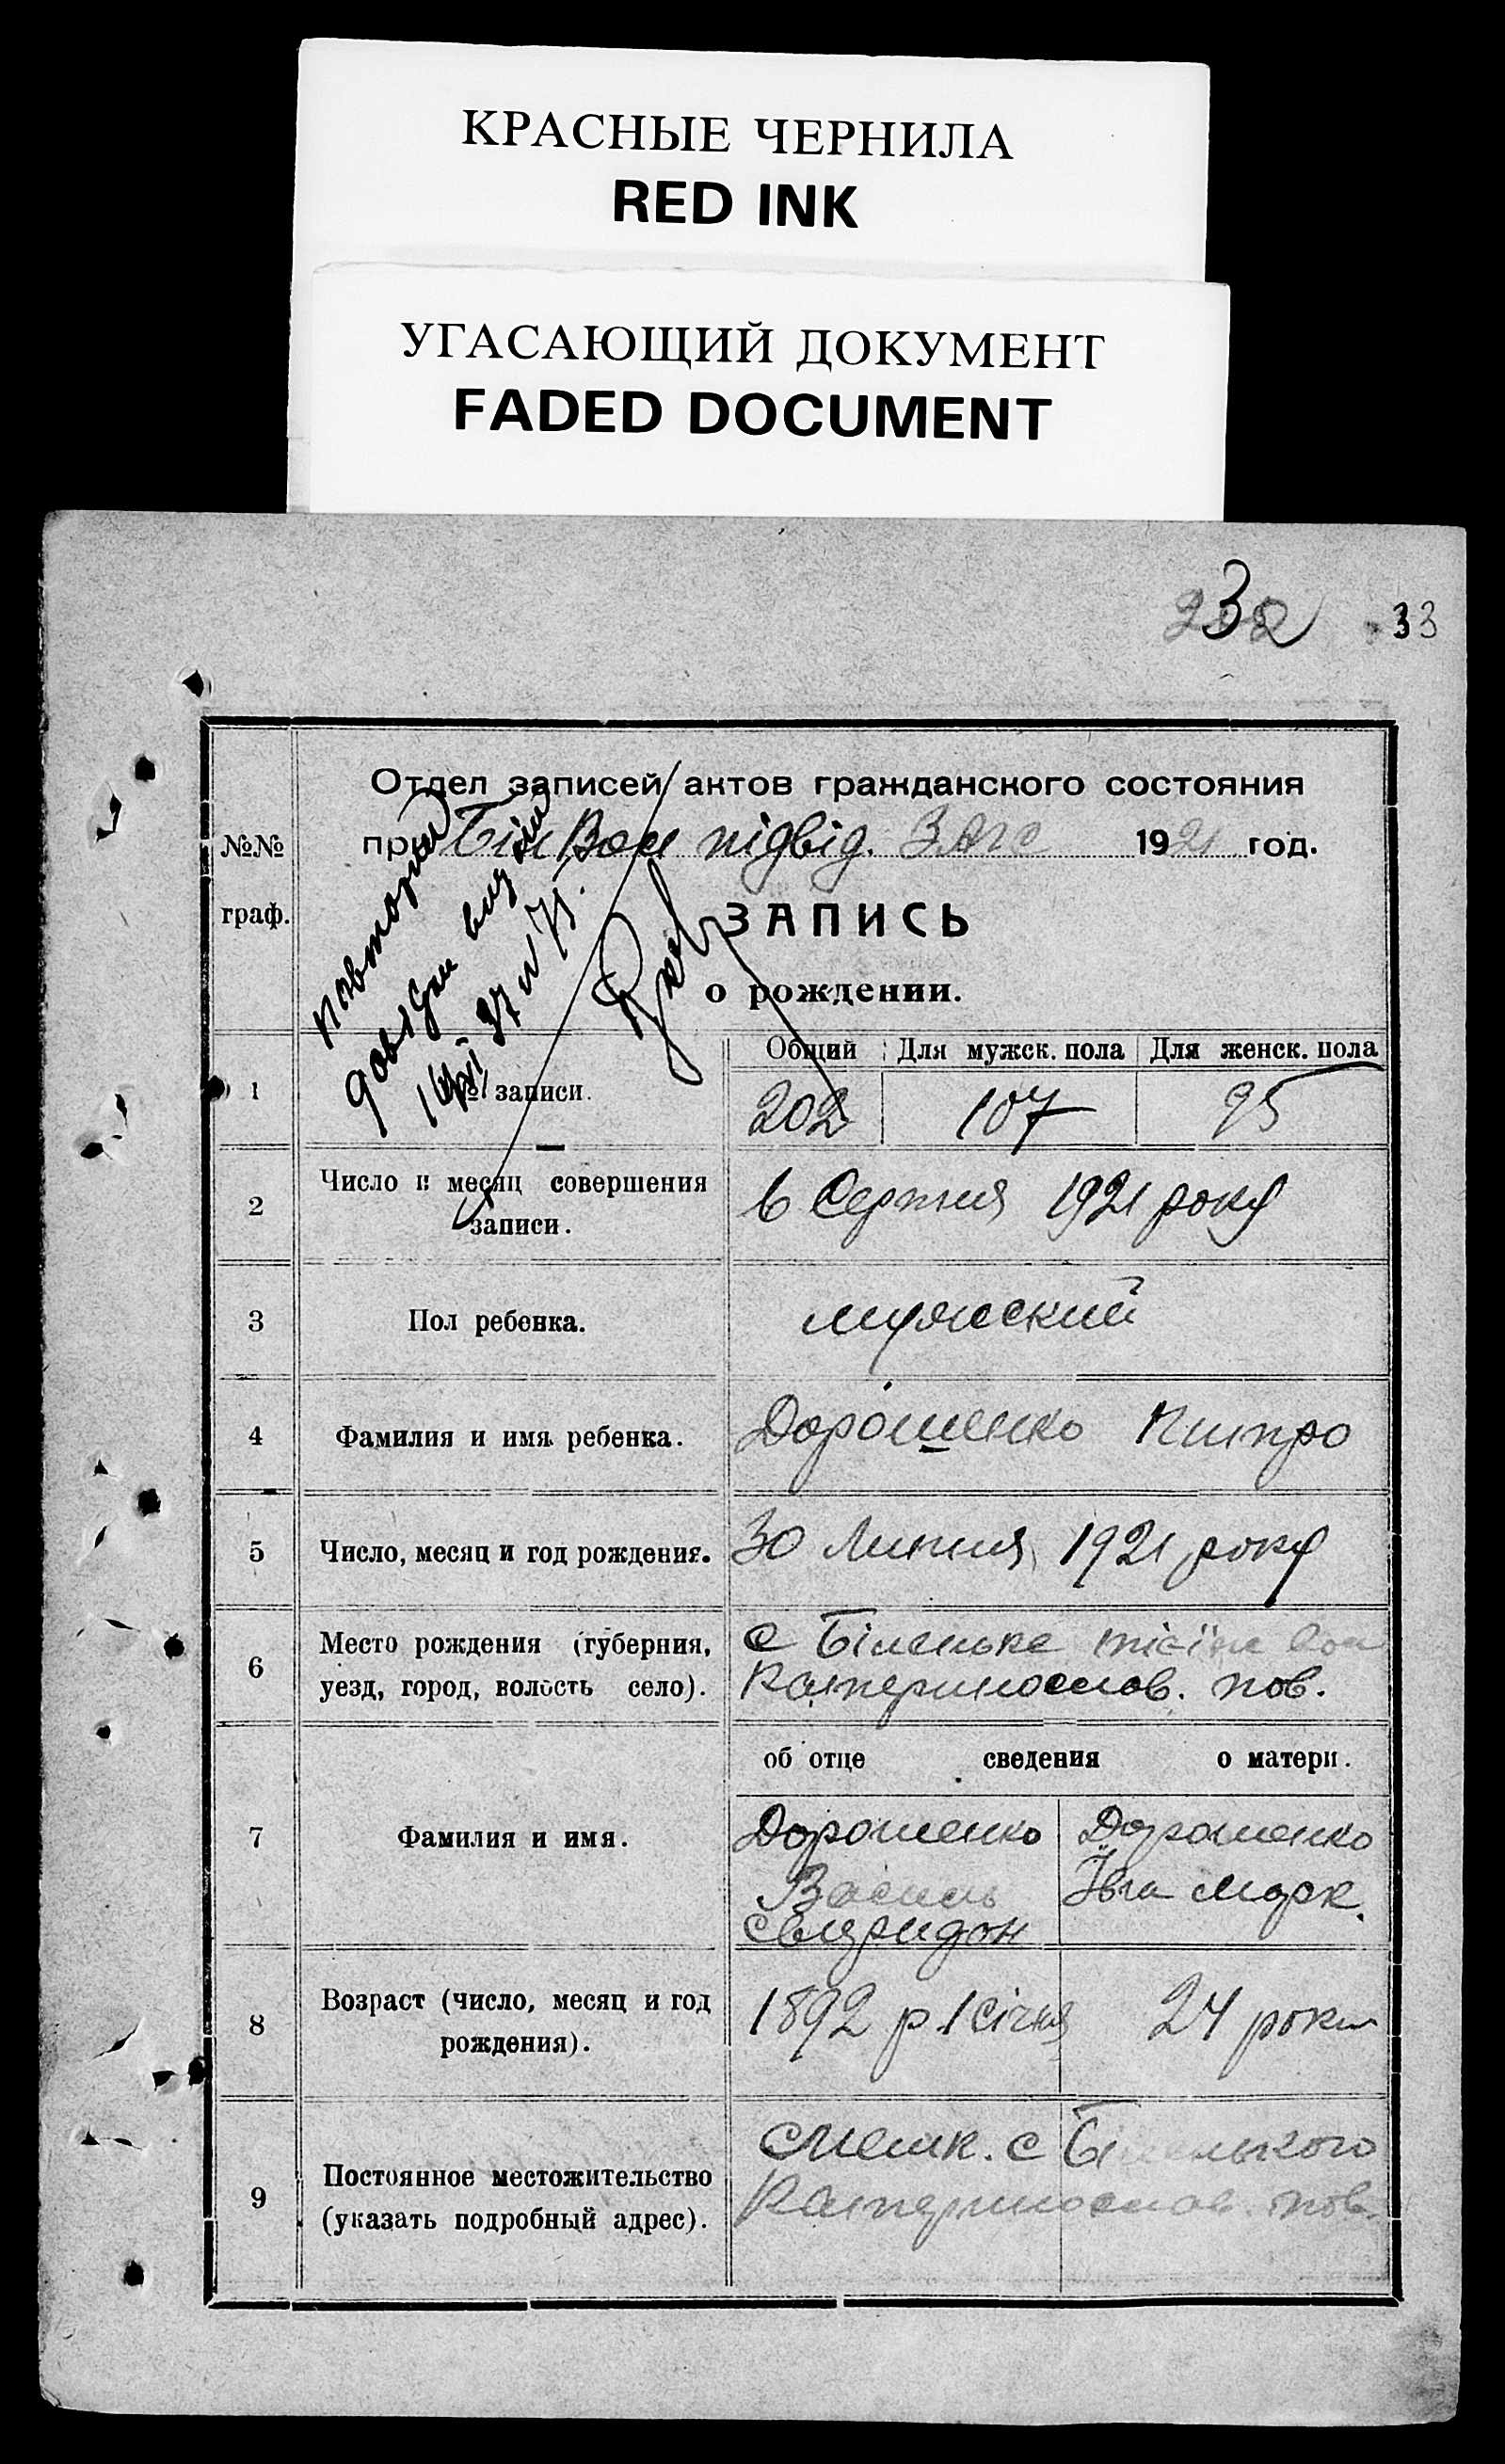 КРАСНЫЕ ЧЕРНИЛА
RED INK
УГАСАЮЩИЙ ДОКУМЕНТ
FADED DOCUMENT
33
Отдел записей актов гражданского состояния
при Біл Вол підвід. ЗАГС 1921 год.
№№
граф.
ЗАПИСЬ
о рождении.
Общий Для мужск. пола Для женск. пола
1 № записи. 202 107 95
2 Число и месяц совершения
записи.
6 Серпня 1921 року
3 Пол ребенка. мужеский
4 Фамилия и имя ребенка. Дорошенко
5 Число, месяц и год рождения. 30 Липня 1921 року
6 Место рождения (губерния,
уезд, город, волость село).
с Біленьке
Катеринослав. пов.
об отце сведения о матери.
7 Фамилия и имя.
Дорошенко Дорошенко
Василь Івга Марк.
Свиридон
8 Возраст (число, месяц и год
рождения).
1892 р 1 січня 24 роки
9 Постоянное местожительство
(указать подробный адрес).
с Біленького
Катеринослав. пов.